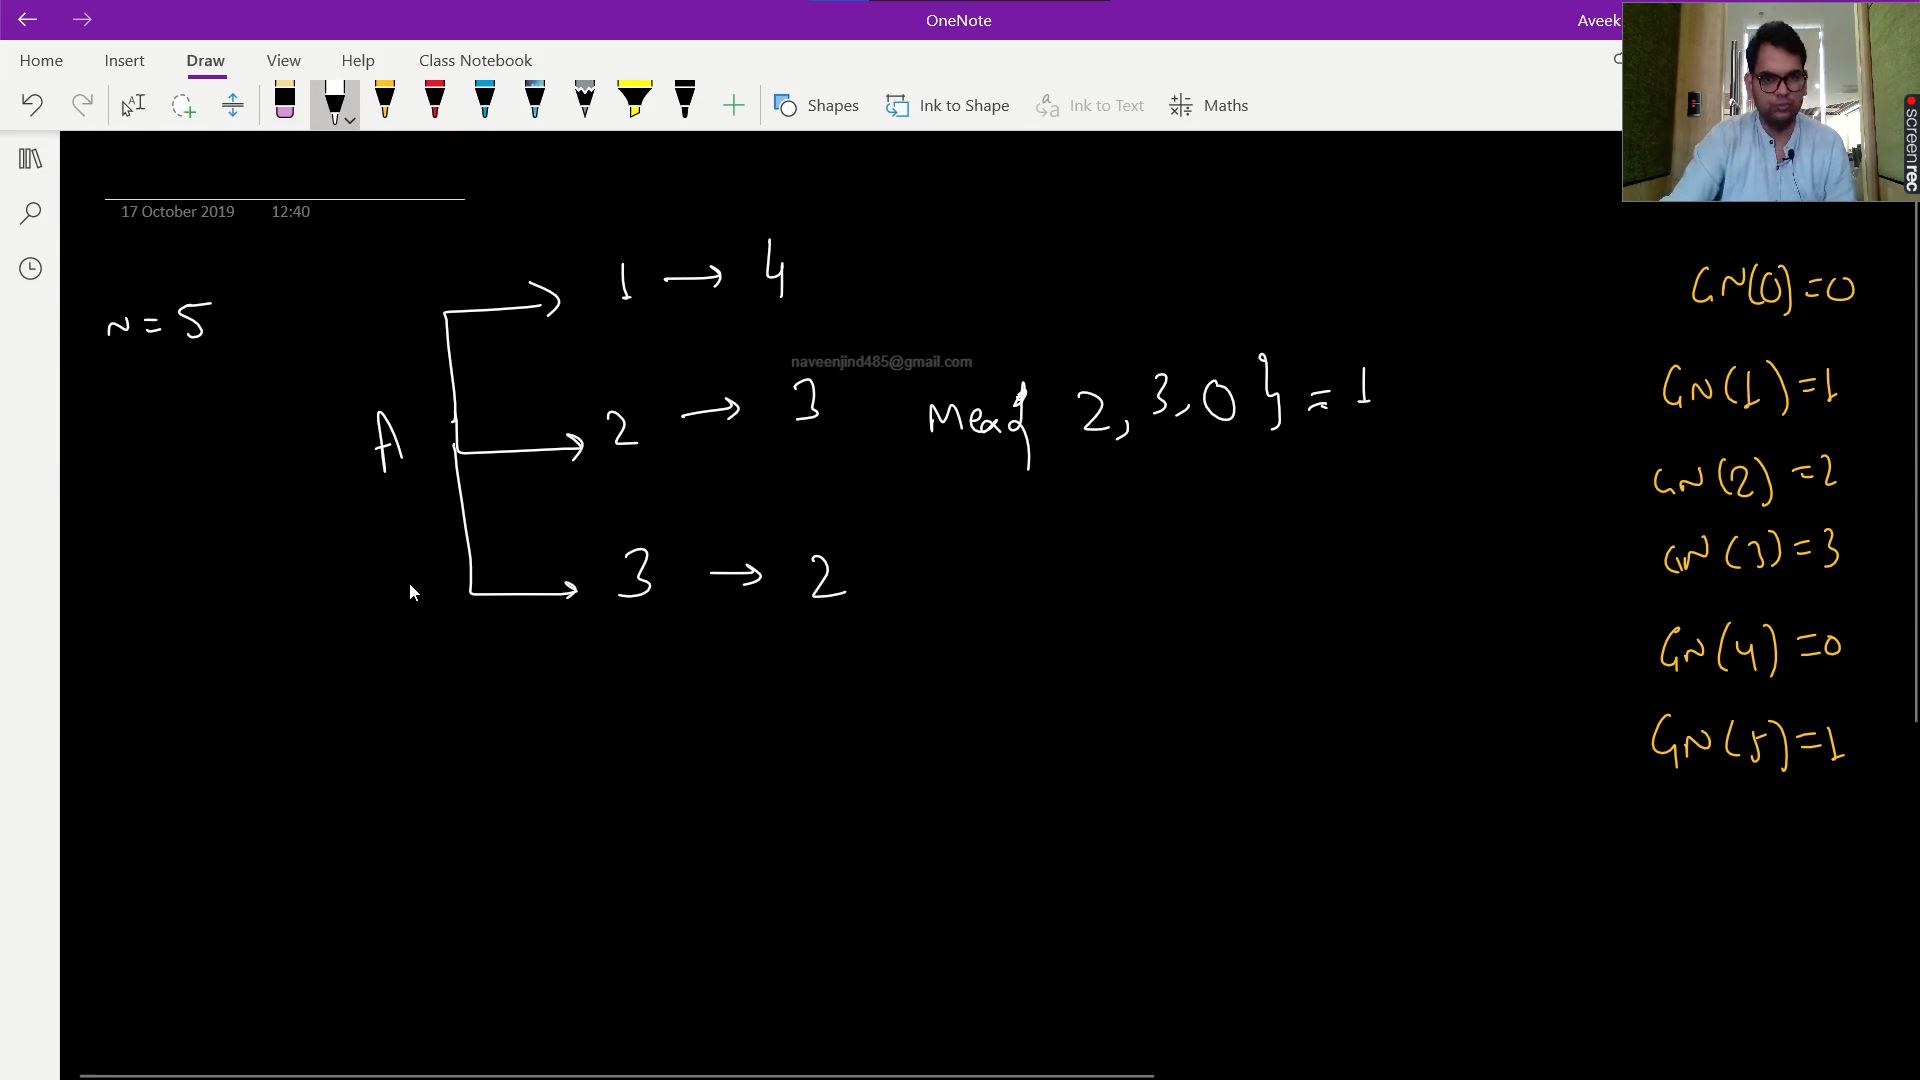 OneNote
Aveek
Home Insert Draw View Help Class Notebook
Shapes Ink to Shape Ink to Text Maths
screenrec
17 October 2019 12:40
n = 5
1 → 4
naveenjind485@gmail.com
A
2 → 3
Mex{ 2, 3, 0 } = 1
3 → 2
GN(0)=0
GN(1)=1
GN(2)=2
GN(3)=3
GN(4)=0
GN(5)=1